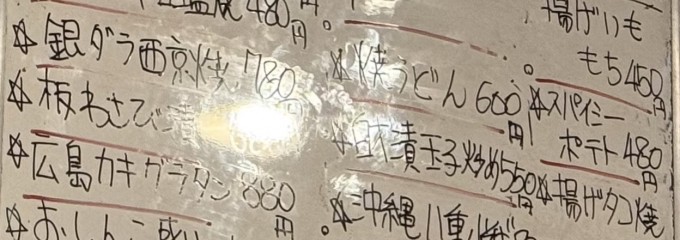 塩焼 480円
☆銀ダラ西京焼 780円
☆板わさび漬
☆広島カキグラタン 880円
☆おしんこ盛り
☆焼うどん 600円
漬玉子炒め 550円
☆沖縄
揚げいももち 450円
☆スパイシーポテト 480円
☆揚げタコ焼